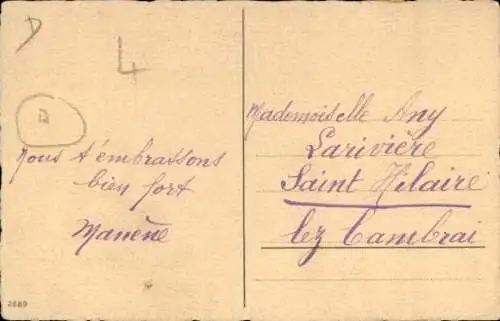 D
L
B
Nous t'embrassons
bien fort
Manène
2689
Mademoiselle Any
Larivière
Saint Hilaire
lez Cambrai